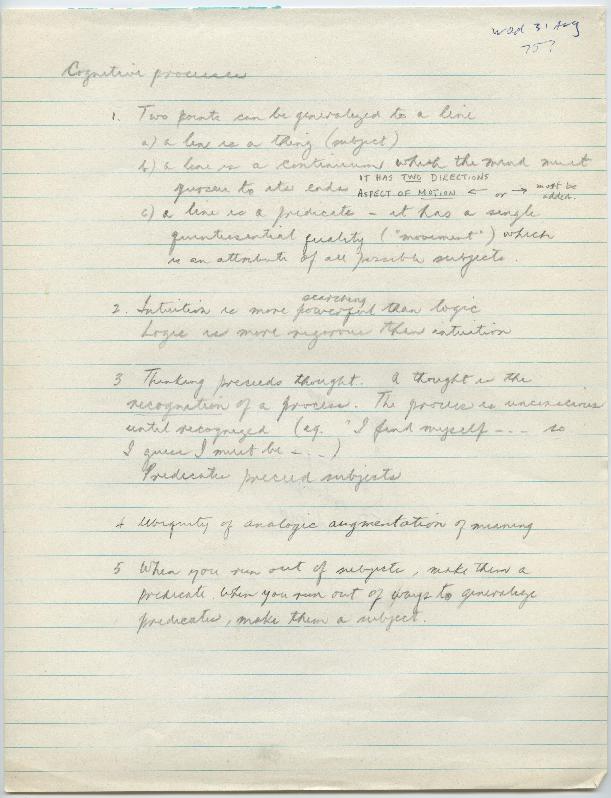 Wed 31 Aug
75?
Cognitive processes
1. Two points can be generalized to a line
a) a line is a thing (subject)
b) a line is a continuum which the mind must
pursue to its ends IT HAS TWO DIRECTIONS
ASPECT OF MOTION ← or → must be added.
c) a line is a predicate – it has a single
quintessential quality ("movement") which
is an attribute of all possible subjects.
searching
2. Intuition is more powerful than logic
Logic is more rigorous than intuition
3 Thinking preceeds thought. A thought is the
recognition of a process. The process is unconscious
until recognized (eg. "I find myself --- so
I guess I must be - . . )
Predicates preceed subjects
4 Ubiquity of analogic augmentation of meaning
5 When you run out of subjects, make them a
predicate. When you run out of ways to generalize
predicates, make them a subject.